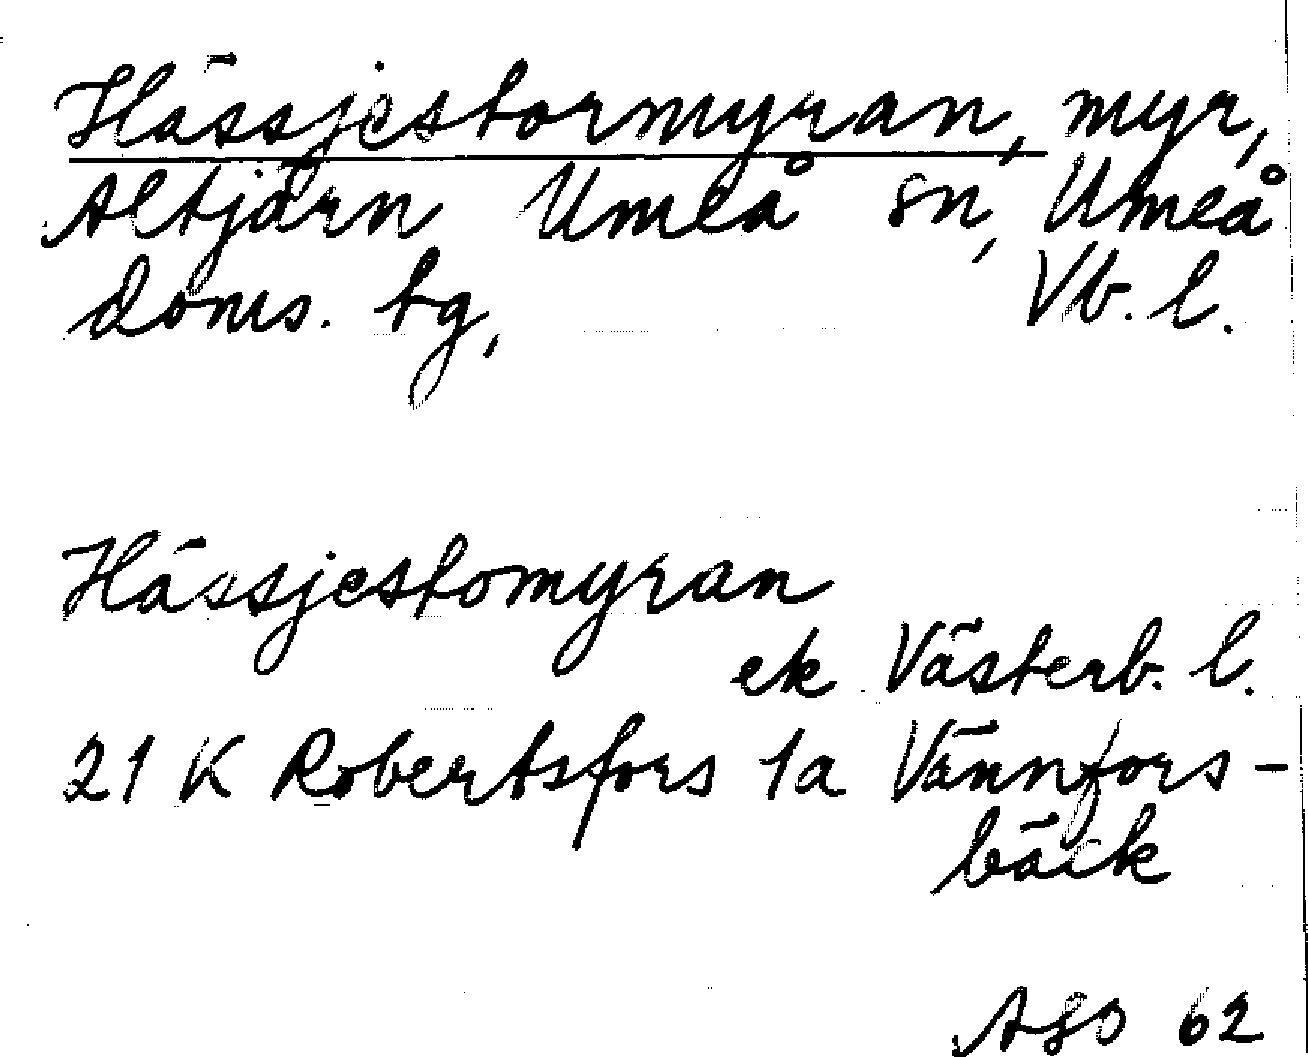 Hässjestormyran, myr,
Altjärn Umeå sn, Umeå
doms. tg, Vb. l.
Hässjestomyran
ek Västerb. l.
21 K Robertsfors 1a Vännfors-
bäck
62